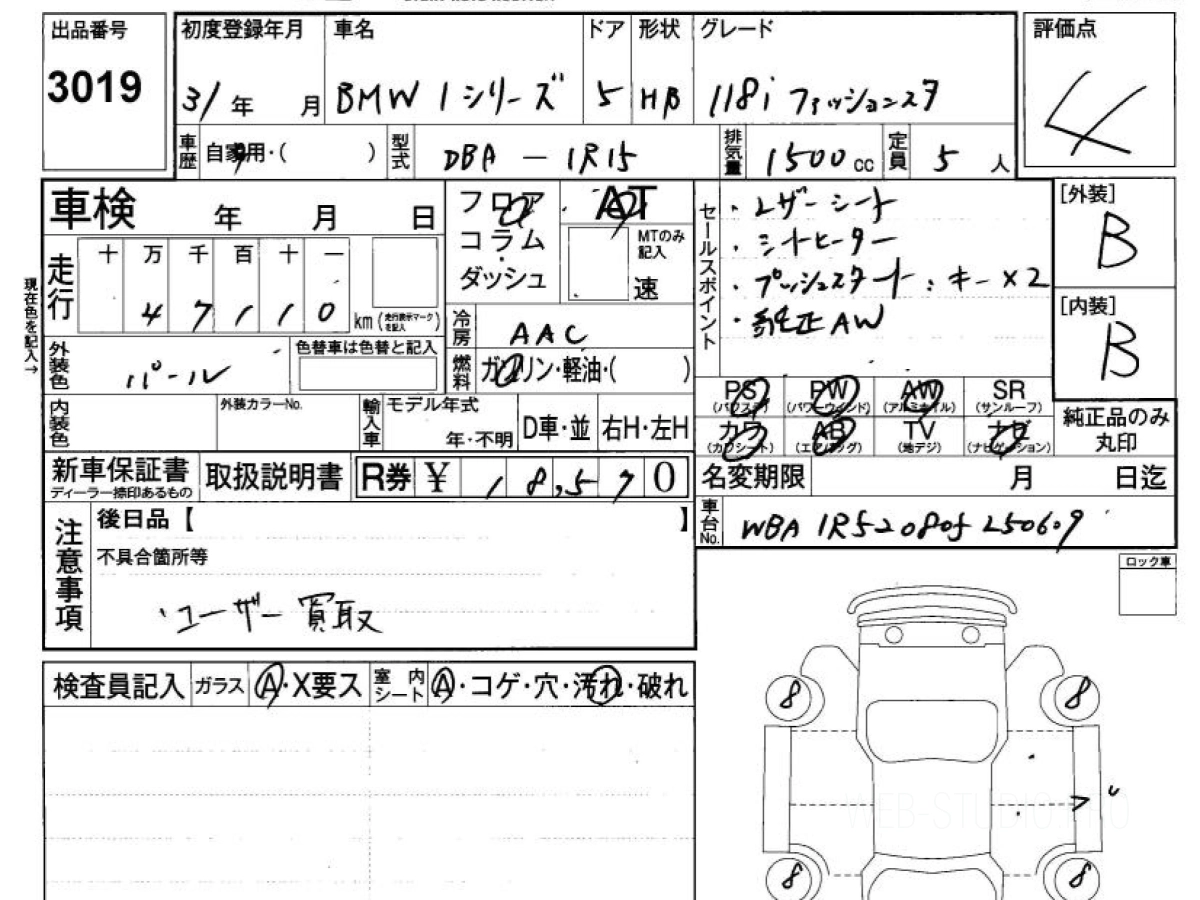 出品番号 初度登録年月 車名 ドア 形状 グレード 評価点
3019 31年 月 BMW 1シリーズ 5 HB 118i ファッションスタ 4
車歴 自家用・( ) 型式 DBA-1R15 排気量 1500cc 定員 5人
車検 年 月 日
フロア
コラム
ダッシュ
AT
MTのみ記入
速
セールスポイント
・レザーシート
・シートヒーター
・プッシュスタート:キー×2
・純正AW
[外装]
B
[内装]
B
現在色を記入→
走行 十 万 千 百 十 一
47110 km(走行表示マークを記入)
冷房 AAC
外装色 パール
色替車は色替と記入
燃料 ガソリン・軽油・( )
PS(パワステ) PW(パワーウィンド) AW(アルミホイル) SR(サンルーフ)
カワ(カワシート) AB(エアバッグ) TV(地デジ) ナビ(ナビゲーション)
純正品のみ丸印
内装色 外装カラーNo. 輸入車 モデル年式 年・不明 D車・並 右H・左H
新車保証書 ディーラー捺印あるもの 取扱説明書 R券 ¥18,570
名変期限 月 日迄
車台No. WBA1R520805250609
注意事項
後日品【 】
不具合箇所等
ユーザー買取
ロック車
検査員記入 ガラス A・X要ス 室内シート A・コゲ・穴・汚れ・破れ
8 8
WEB-STUDIO.PRO
8 8